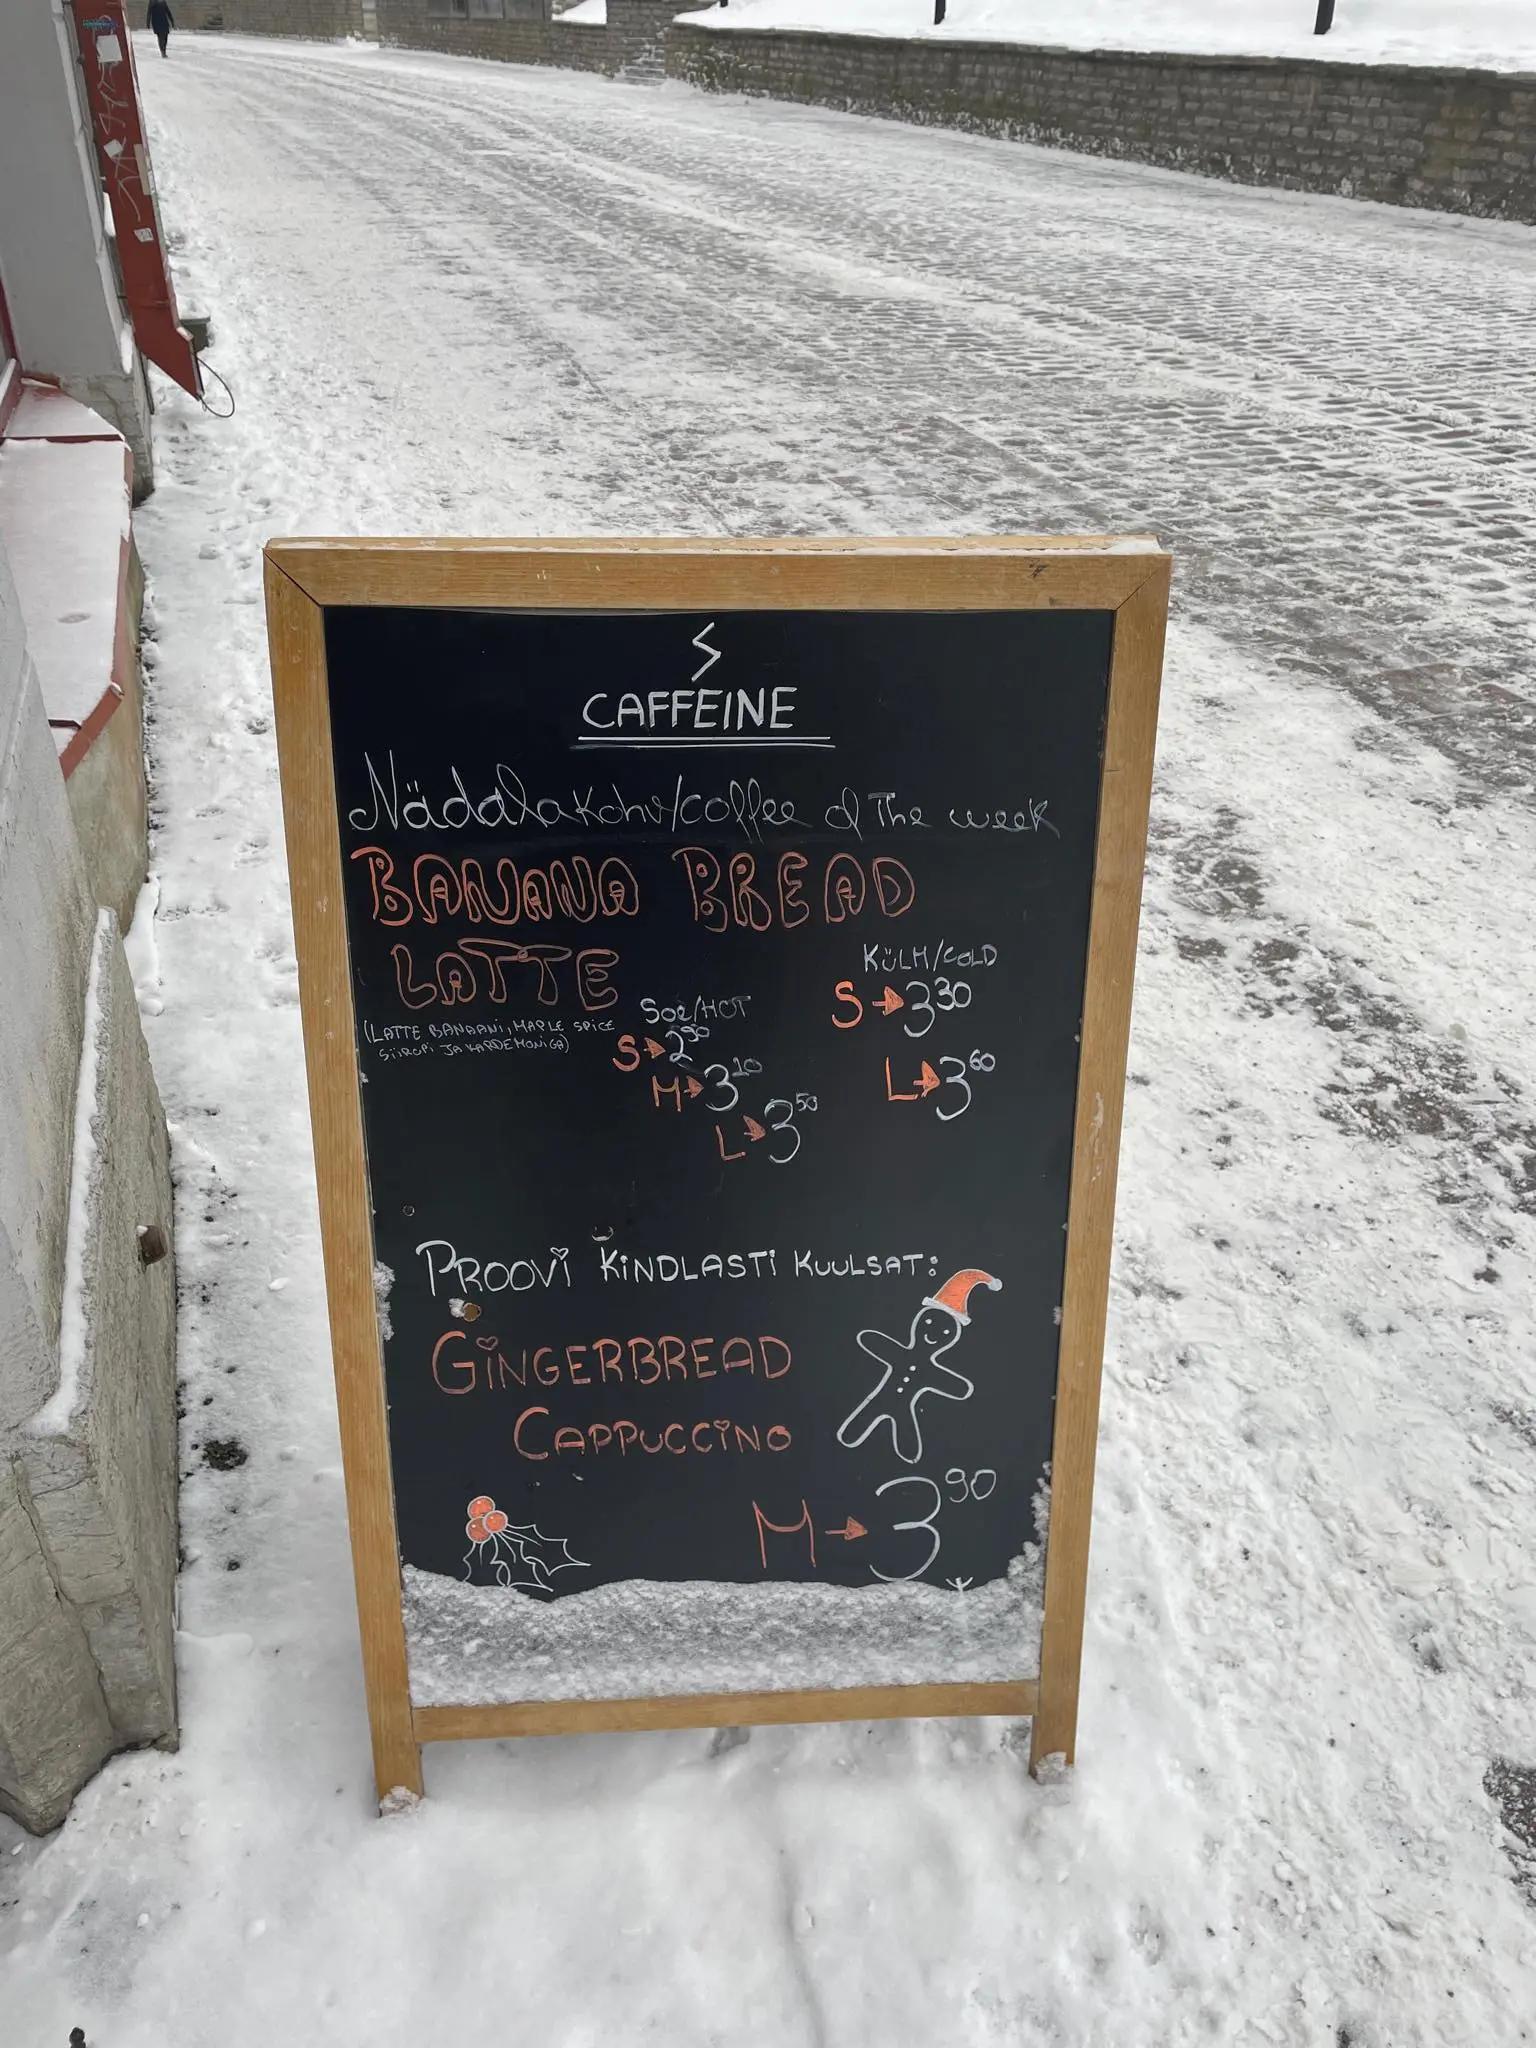 CAFFEINE
Nädalakohv/coffee of the week
BANANA BREAD
LATTE
(LATTE BANAANI, MAPLE SPICE
SIIROPI JA KARDEMONIGA)
SOE/HOT
S→2 90
M→3 20
L→3 50
KÜLM/COLD
S→3 30
L→3 60
PROOVI KINDLASTI KUULSAT:
GINGERBREAD
CAPPUCCINO
M→3 90